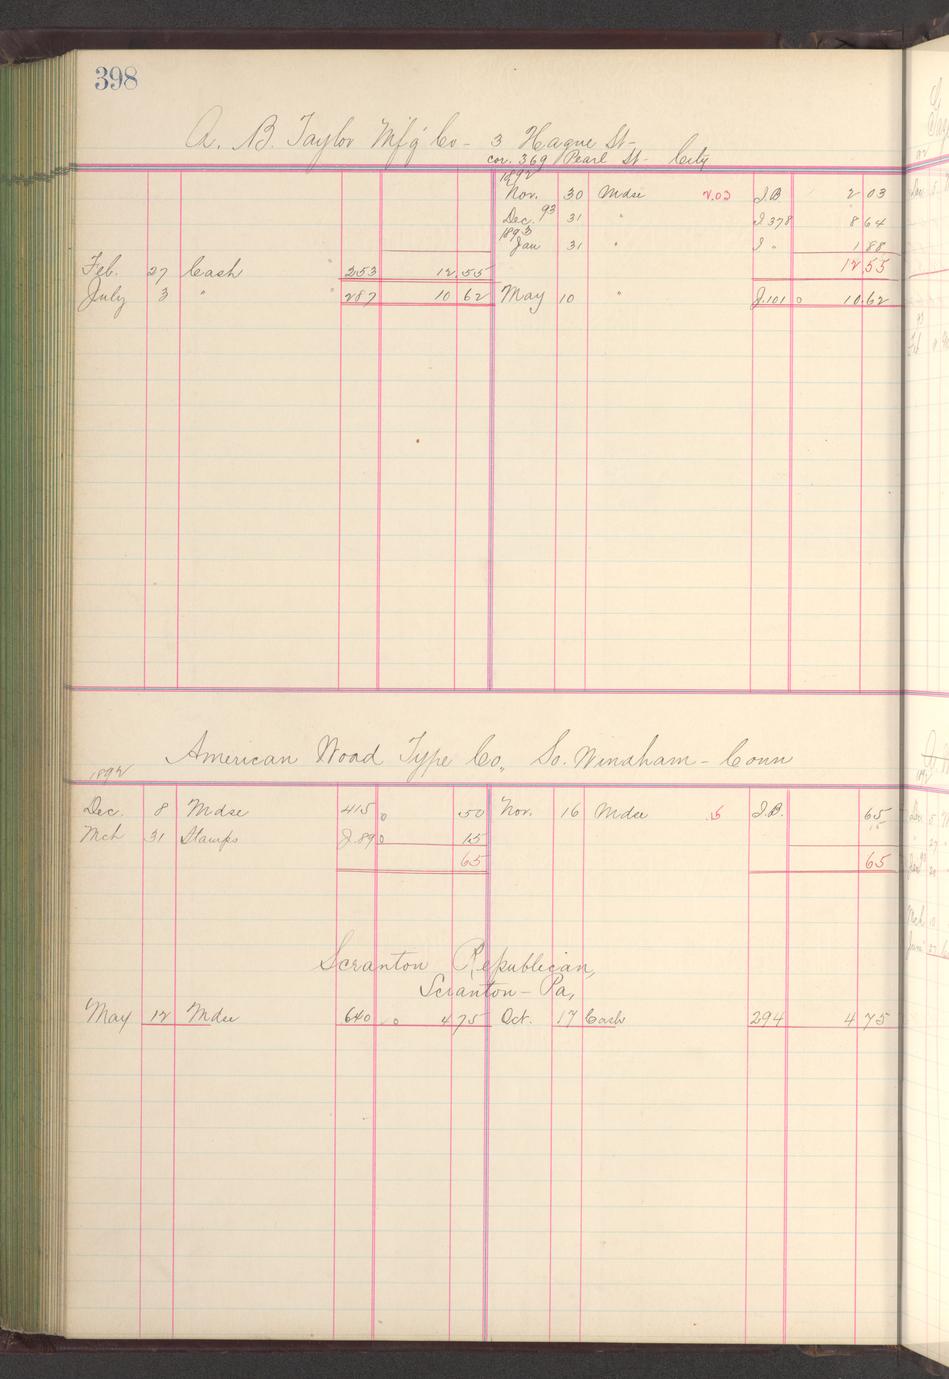 398
A. B. Taylor Mf'g Co - 3 Hague St -
cor. 369 Pearl St - City
1892
Nov. 30 Mdse 2.03 I.B. 2 03
Dec. 93 31 " J 378 8 64
1893
Jan 31 " J " 1 88
12 55
Feb. 27 Cash 253 12.55
July 3 " 287 10 62 May 10 " J.101 0 10.62
American Wood Type Co., So. Windham - Conn
1892
Dec. 8 Mdse 415 0 50 Nov. 16 Mdse I.B. 65
Mch 31 Stamps J.89 0 15
65 65
Scranton Republican,
Scranton - Pa,
May 12 Mdse 640 0 4 75 Oct. 17 Cash 294 4 75